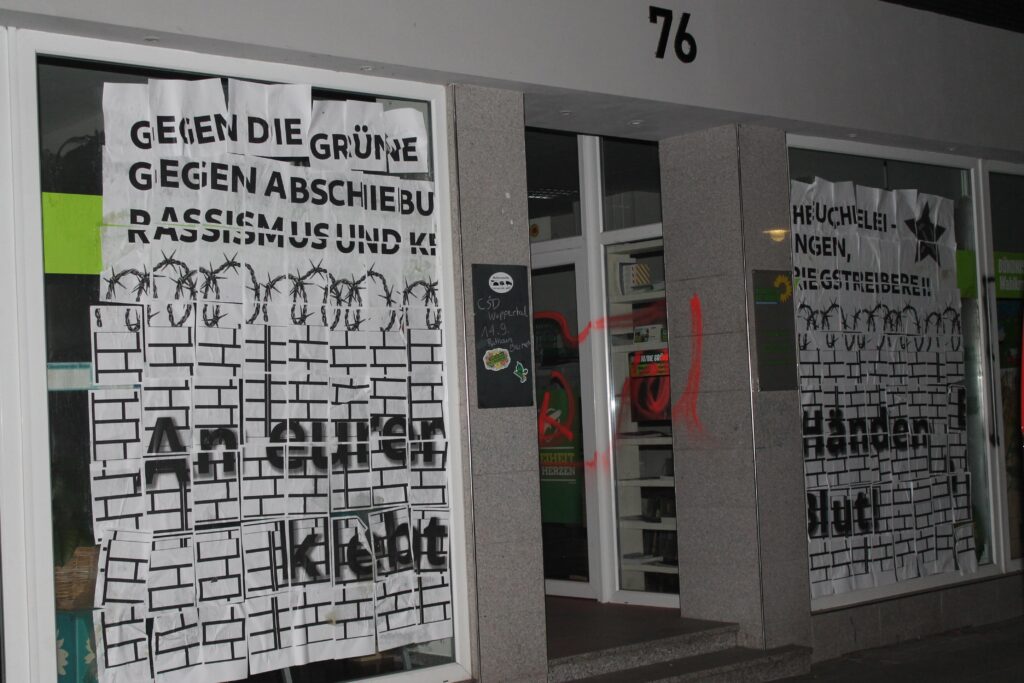 76
GEGEN DIE GRÜNE
GEGEN ABSCHIEBU
RASSISMUS UND KE
An euren
klebt
CSD
Wuppertal
14.9.
EIHEIT
HERZEN
HEUCHELEI -
NGEN,
RIEGSTREIBEREI!
Händen
Blut!